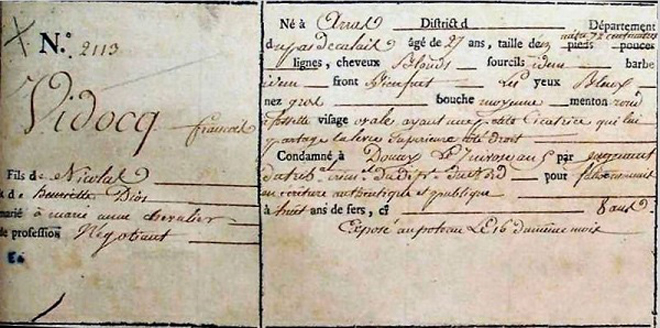 N.° 2113
Vidocq francois
Fils de Nicolas
& d henriette Dion
marié à marie anne chevalier
de profession Négotiant
Né à Arras District d Département
du pas de calais âgé de 27 ans, taille de 1 mètre 72 centimètres pieds pouces
lignes, cheveux Blonds sourcils idem barbe
idem front Bienfait Les yeux Bleux
nez gros bouche moyenne menton rond
fossette visage ovale ayant une petite Cicatrice qui lui
partage la levre Supérieure côté droit
Condamné à Douay Le 7 nivose an 5 par jugement
du trib.al crim.el du dép.t du Nord pour
en écriture authentique et publique
à huit ans de fers, ci 8 ans
Exposé au poteau LE 16 du même mois